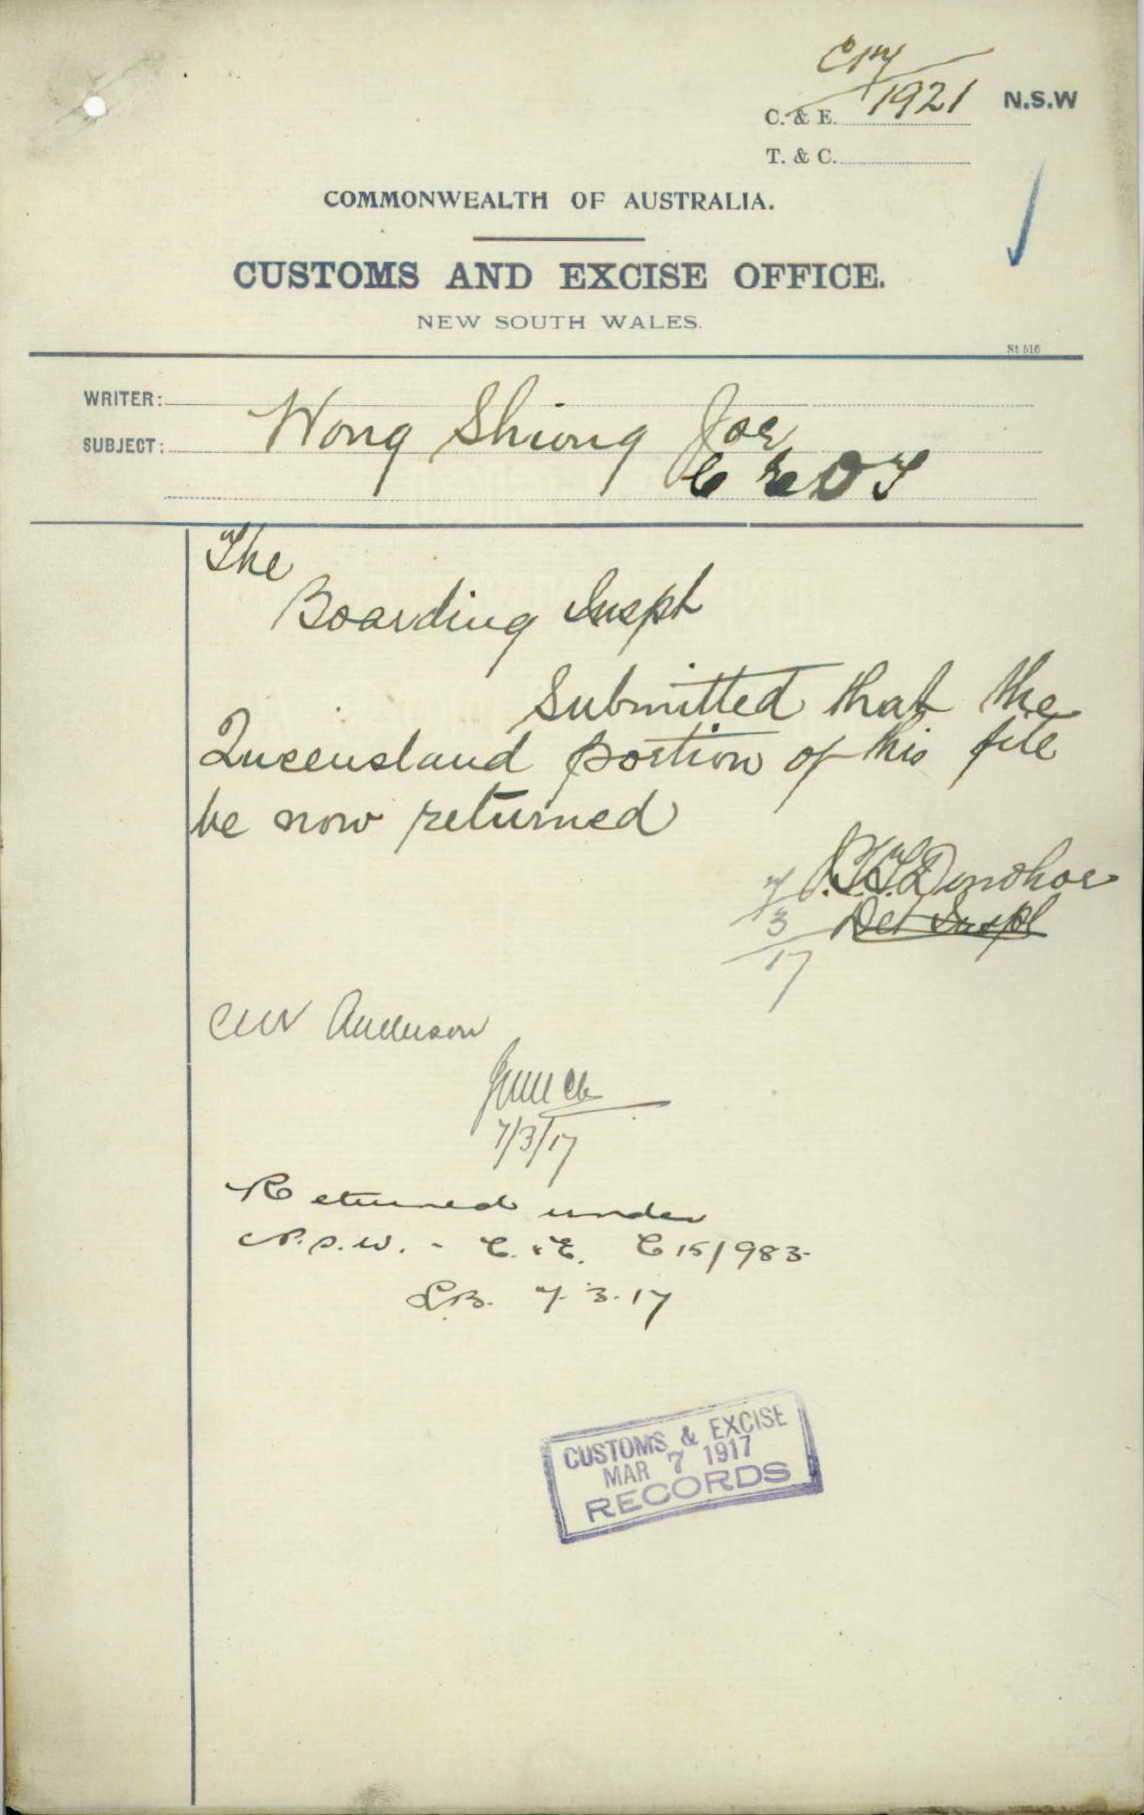 C17/1921
C. & E.
N.S.W
T. & C.
COMMONWEALTH OF AUSTRALIA.
CUSTOMS AND EXCISE OFFICE.
NEW SOUTH WALES.
St 516
WRITER:
SUBJECT:
Wong Shiong Joe
C E D T
The
Boarding Inspt
Submitted that the
Queensland portion of this file
be now returned
J.T.T. Donohoe
Det Inspt
7/3/17
Anderson
7/3/17
Returned under
N.S.W. - C. & E. C 15/983
7.3.17
CUSTOMS & EXCISE
MAR 7 1917
RECORDS